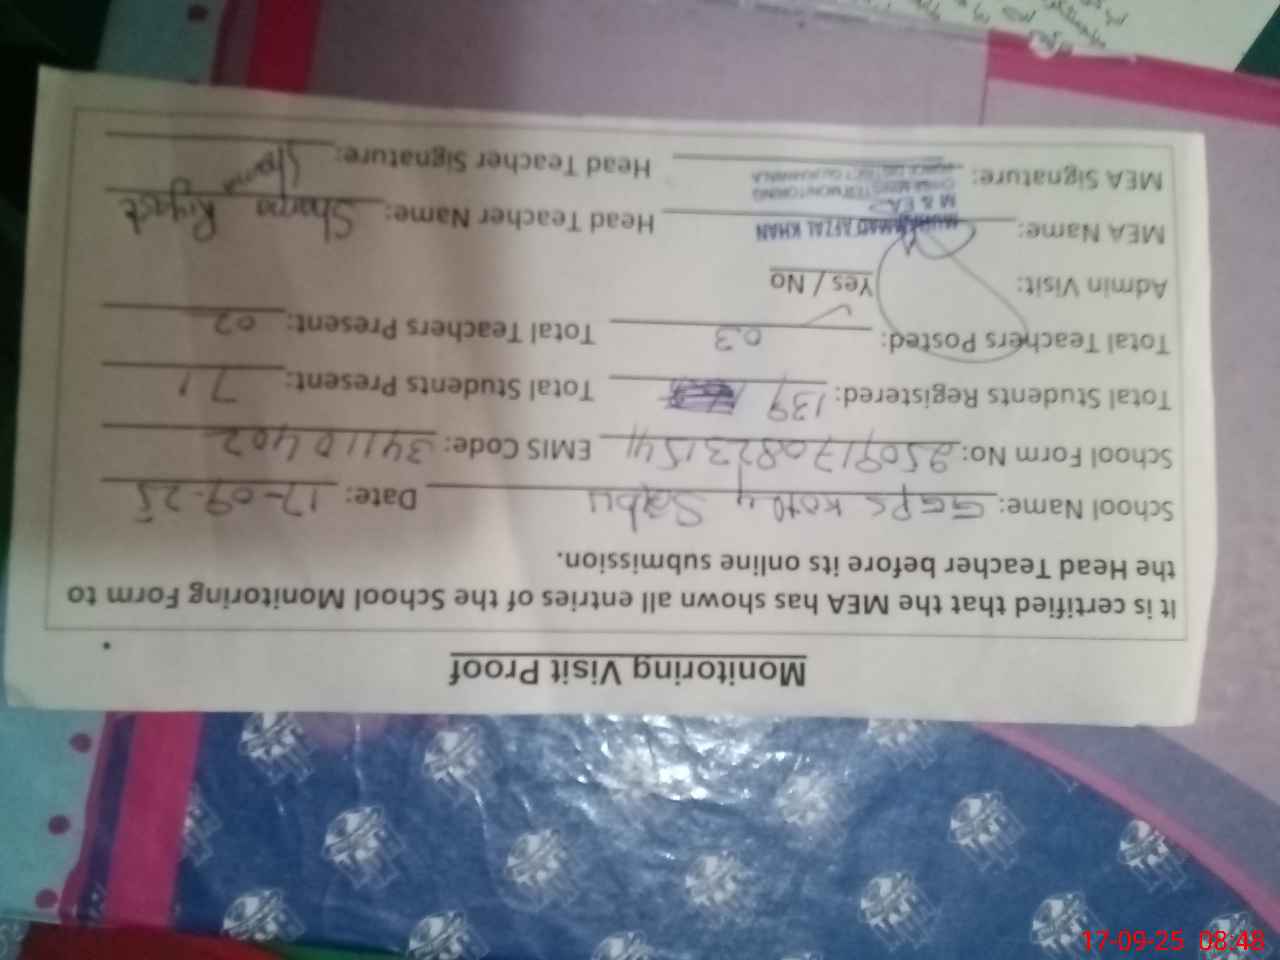 Monitoring Visit Proof
It is certified that the MEA has shown all entries of the School Monitoring Form to
the Head Teacher before its online submission.
School Name: GGPS Kotly Sabu Date: 17-09-25
School Form No: 250917082315411 EMIS Code: 34110402
Total Students Registered: 139 Total Students Present: 71
Total Teachers Posted: 03 Total Teachers Present: 02
Admin Visit: Yes / No
MEA Name: MUHAMMAD AFZAL KHAN Head Teacher Name: Riyast
M & EA
CHIEF MINISTER MONITORING
MEA Signature: Head Teacher Signature:
17-09-25 08:48